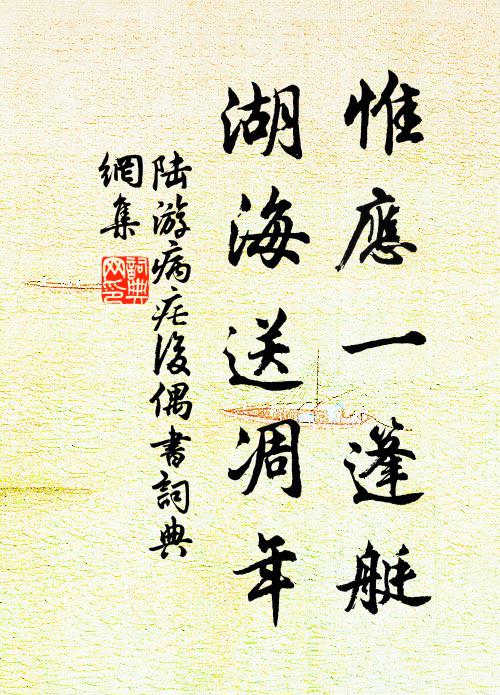 惟應一篷艇
湖海送凋年
陸游病疟後偶書詞典
網集
詞典
网印